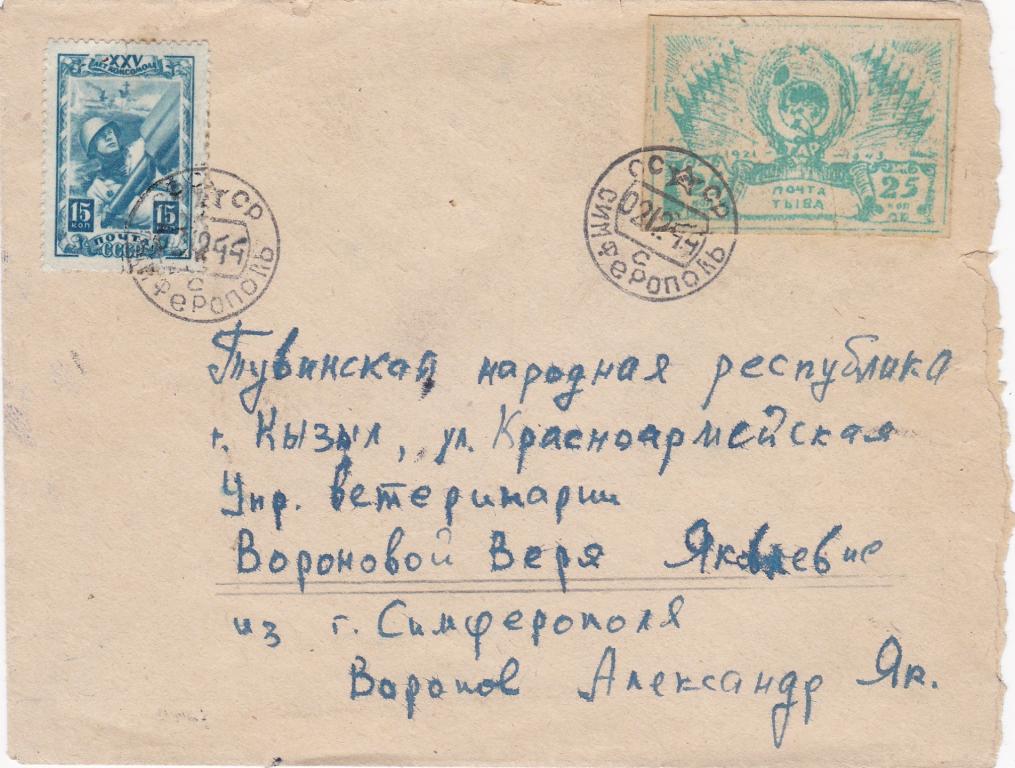 XXV
ЛЕТ КОМСОМОЛА
15
КОП
15
КОП
ПОЧТА
СССР
СССР
2 44
С
СИМФЕРОПОЛЬ
1921
ПОЧТА
ТЫВА
25
КОП
СССР
02 12 44
С
СИМФЕРОПОЛЬ
Тувинская народная республика
г. Кызыл, ул. Красноармейская
Упр. ветеринарии
Вороновой Веря Яковлевне
из г. Симферополя
Воронов Александр Як.